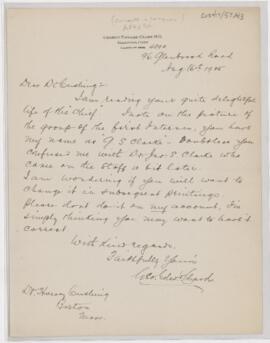 96 Glenwood Road
Aug 16th, 1925
Dear Dr Cushing:
I am reading your quite delightful
life of "the Chief". I note on the picture of
the group of the first Internes, you have
my name as G S Clarke - Doubtless you
confuse me with Dr. Jas. S. Clarke who
came on the staff a bit later.
I am wondering if you will want to
change it in subsequent printings.
Please dont do it on my account, I'm
simply thinking you may want to have it
correct.
With kind regards.
Faithfully Yours
Dr. Harvey Cushing
Boston
Mass.